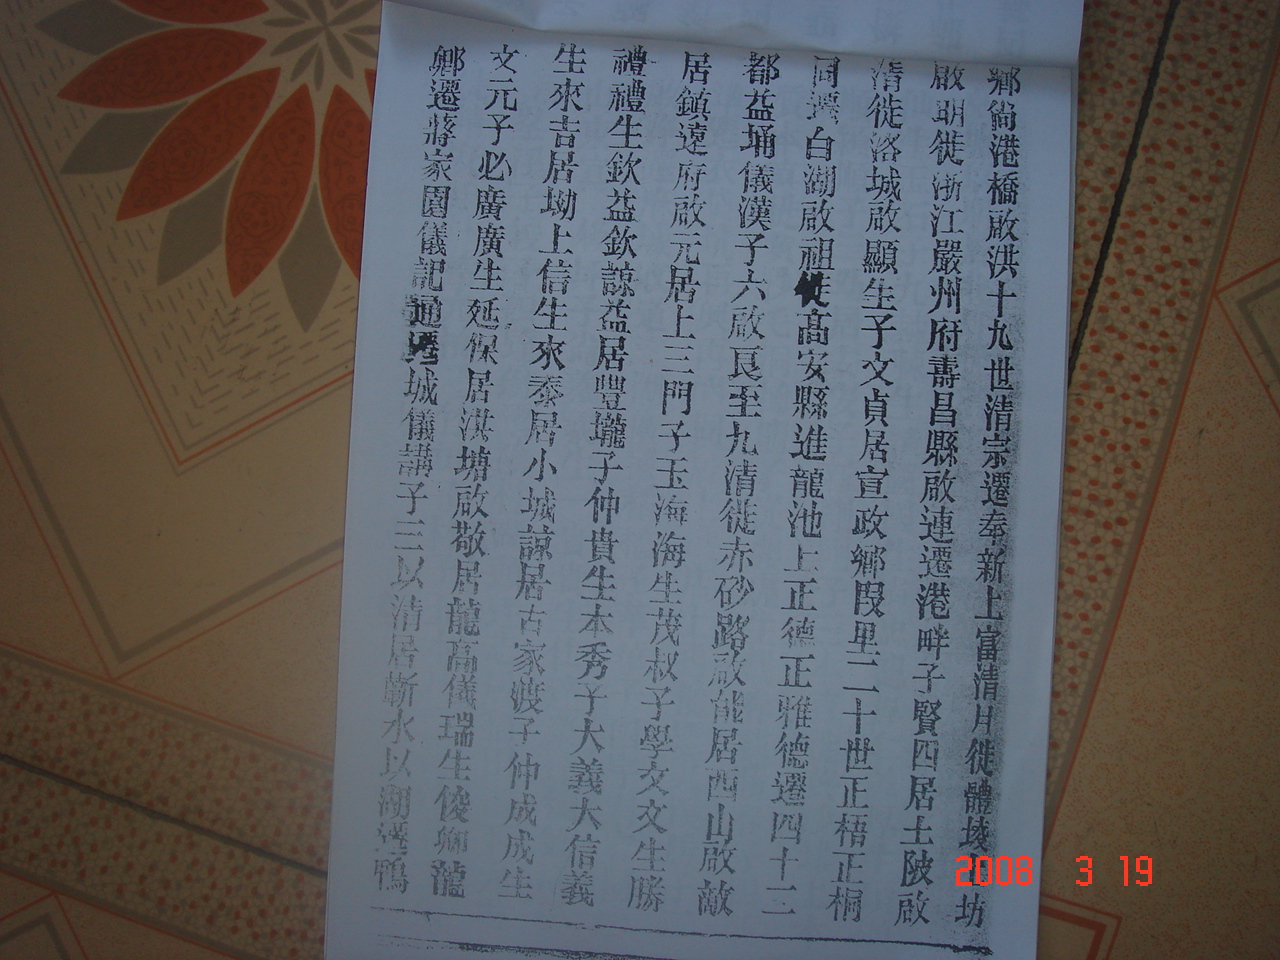 鄉尙港橋啟洪十九世清宗遷奉新上富清月徙體坡坊
啟明徙浙江嚴州府壽昌縣啟連遷港畔子賢四居土陂啟
清徙洛城啟顯生子文貞居宣政鄉叚里二十世正梧正桐
同遷白湖啟祖徙高安縣進龍池上正德正雅德遷四十三
都益埇儀漢子六啟良至九清徙赤砂路啟能居西山啟敵
居鎮遠府啟元居上三門子玉海海生茂叔子學文文生勝
禮禮生欽益欽諒益居豐壠子仲貴生本秀子大義大信義
生來吉居坳上信生來泰居小城諒居古家渡子仲成成生
文元子必廣廣生延保居洪塘啟敬居龍高儀瑞生俊卿龍
鄉遷蔣家園儀記通遷城儀講子三以清居蘄水以湖遷鴨
2008 3 19